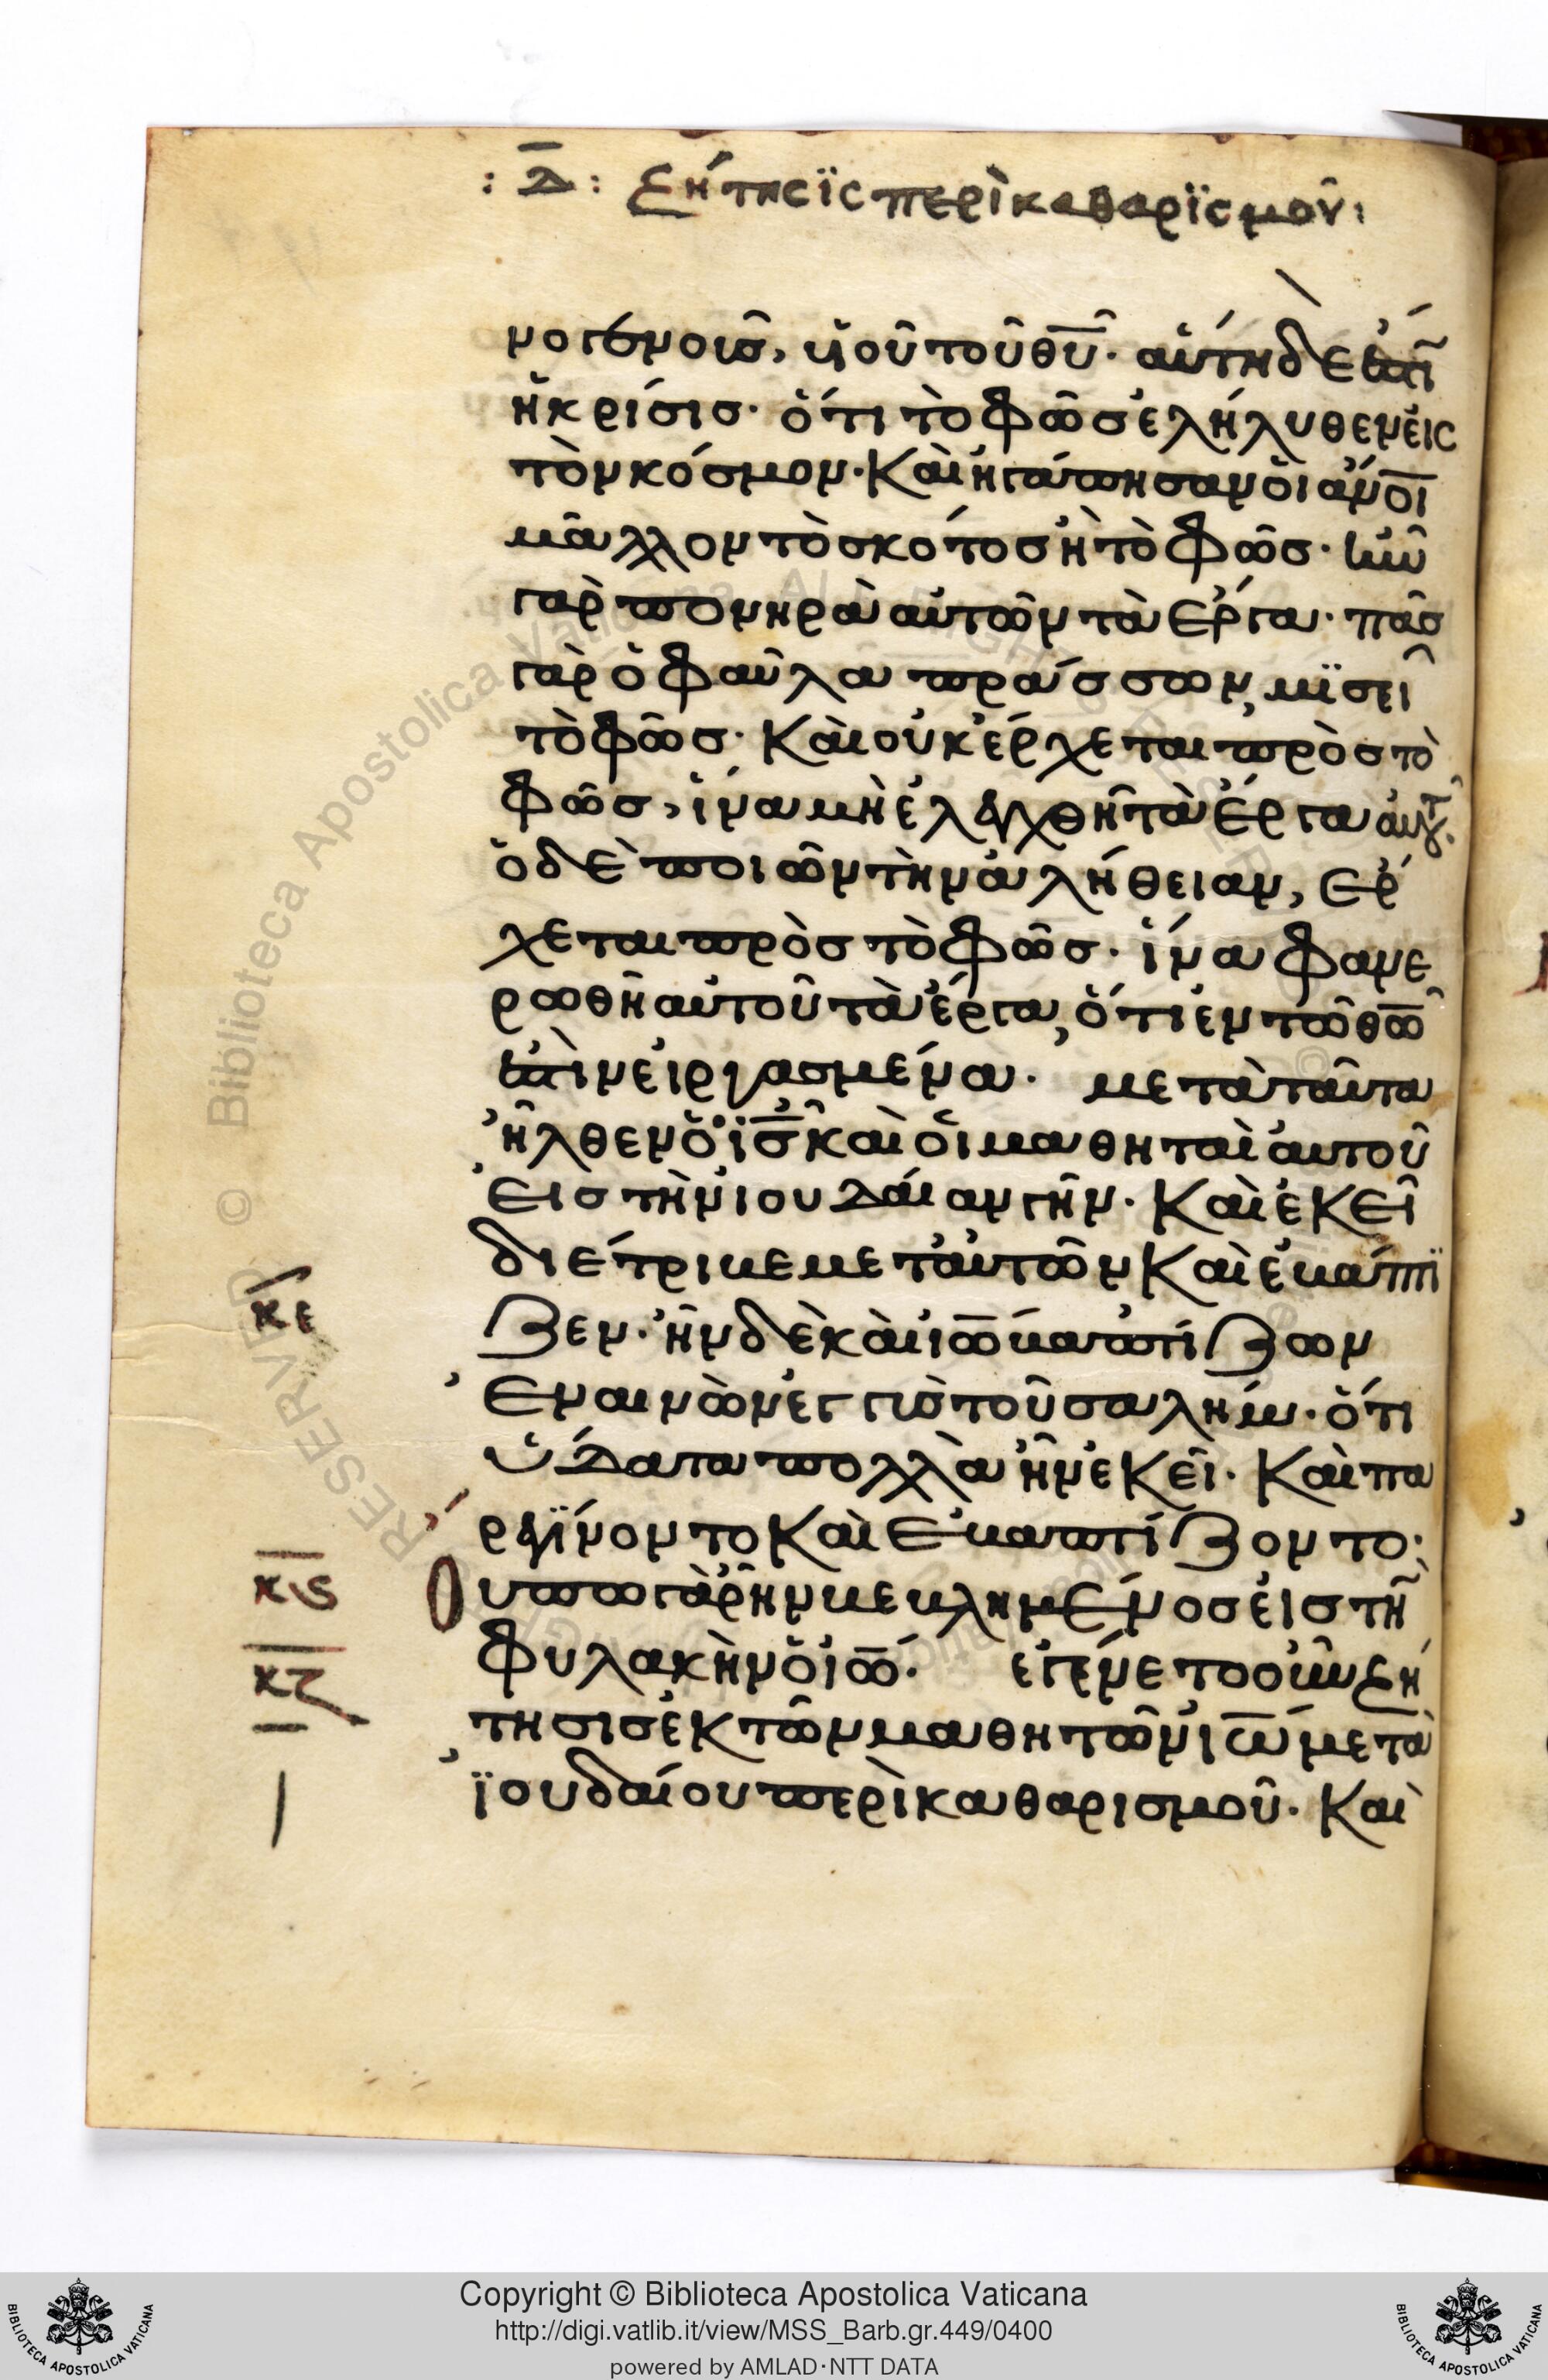 : Δ̅ : ζήτησϊς περὶ καθαρϊσμοῦ:
νογενοῦς, υἱοῦ τοῦ θ̅υ̅. αὕτη δέ ἐστιν
ἡ κρίσις. ὅτι τὸ φῶς ἐλήλυθεν εἰς
τὸν κόσμον. Καὶ ἠγάπησαν οἱ ἄν̅ο̅ι̅
μᾶλλον τὸ σκότος ἢ τὸ φῶς. ἦν
γὰρ πονηρὰ αὐτῶν τὰ ἔργα. πᾶς
γὰρ ὁ φαῦλα πράσσων, μϊσεῖ
τὸ φῶς. Καὶ οὐκ ἔρχεται πρὸς τὸ
φῶς, ἵνα μὴ ἐλεγχθῆ τὰ ἔργα αὐτοῦ.
ὁ δὲ ποιῶν τὴν ἀλήθειαν, ἔρ
χεται πρὸς τὸ φῶς. ἵνα φανε
ρωθῆ αὐτοῦ τὰ ἔργα, ὅτι ἐν τῶ θ̅ω̅
ἐστὶν εἰργασμένα. μετὰ ταῦτα
ἦλθεν ὁ ι̅ς̅ καὶ οἱ μαθηταὶ αὐτοῦ
εἰς τὴν ἰουδαίαν γῆν. Καὶ ἐκεῖ
διέτριβε μετ' αὐτῶν Καὶ ἐβάπτϊ
κε
ζεν. ἦν δὲ καὶ ἰω̅ βαπτίζων
ἐν αἰνὼν ἐγγὺς τοῦ σαλήμ. ὅτι
ὕδατα πολλὰ ἦν ἐκεῖ. Καὶ πα
ρεγΐνοντο Καὶ ἐβαπτίζοντο.
κς
οὔπω γὰρ ἦν βεβλημένος εἰς τὴν
κζ
φυλακὴν ὁ ἰω̅. ἐγένετο οὖν ζή
τησις ἐκ τῶν μαθητῶν ἰω̅ μετὰ
ϊουδαίου περὶ καθαρισμοῦ. Καὶ
Copyright © Biblioteca Apostolica Vaticana
http://digi.vatlib.it/view/MSS_Barb.gr.449/0400
powered by AMLAD·NTT DATA
BIBLIOTECA APOSTOLICA VATICANA
BIBLIOTECA APOSTOLICA VATICANA